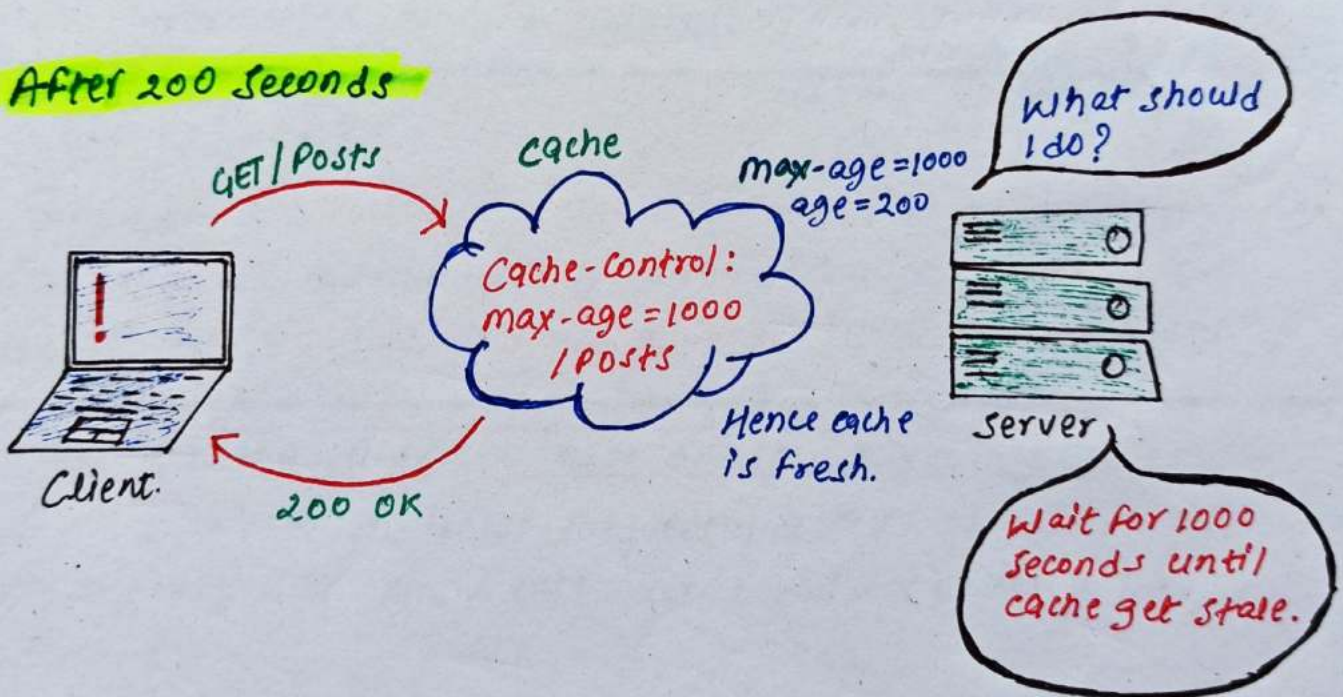 After 200 Seconds
GET/Posts
Cache
max-age=1000
age=200
What should
I do?
Cache-Control:
max-age=1000
/Posts
Hence cache
is fresh.
Server
Client.
200 OK
Wait for 1000
seconds until
cache get stale.